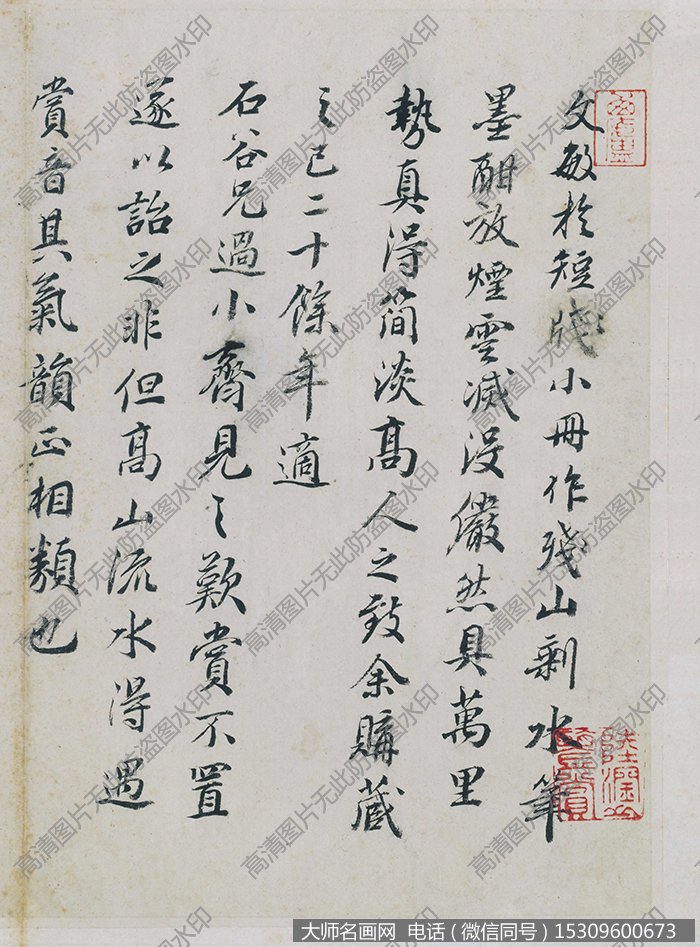 文敏於短牋小冊作殘山剩水筆
墨酣放煙雲滅没儼然具萬里
勢真得簡淡高人之致余購藏
之已二十餘年適
石谷兄過小齋見之歎賞不置
遂以詒之非但高山流水得遇
賞音其氣韻正相類也
高清图片无此防盗图水印
大师名画网 电话（微信同号）15309600673